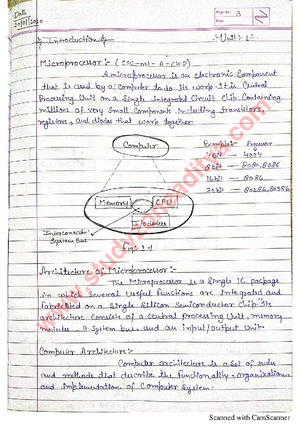 Date
30/01/2020
Page No. 3
Introduction
Unit: 1
Microprocessor:- (CPU-ON-A-CHIP)
A microprocessor is an electronic Component
that is used by a Computer to do its work. It is Central
Processing Unit on a Single Integrated Circuit Chip Containing
millions of very Small Component including transistors
registors, and diodes that work together
Computer
Example:- Processor
4bit - 4004
8bit - 8080, 8085
16bit - 8086
32bit - 80286, 80386
Memory
CPU
I/O devices
Interconnection
System Bus
Fig: 1.1
Architecture of Microprocessor:-
The Microprocessor is a Single IC package
in which Several Useful functions are Integrated and
fabricated on a Single Silicon Semiconductor Chip. Its
architecture Consists of a Central processing Unit, memory
modules, a System bus and an input/output Unit.
Computer Architecture:-
Computer architecture is a Set of rules
and methods that describe the functionality, Organization
and implementation of Computer System.
www.studyforcoaditya.com
Scanned with CamScanner